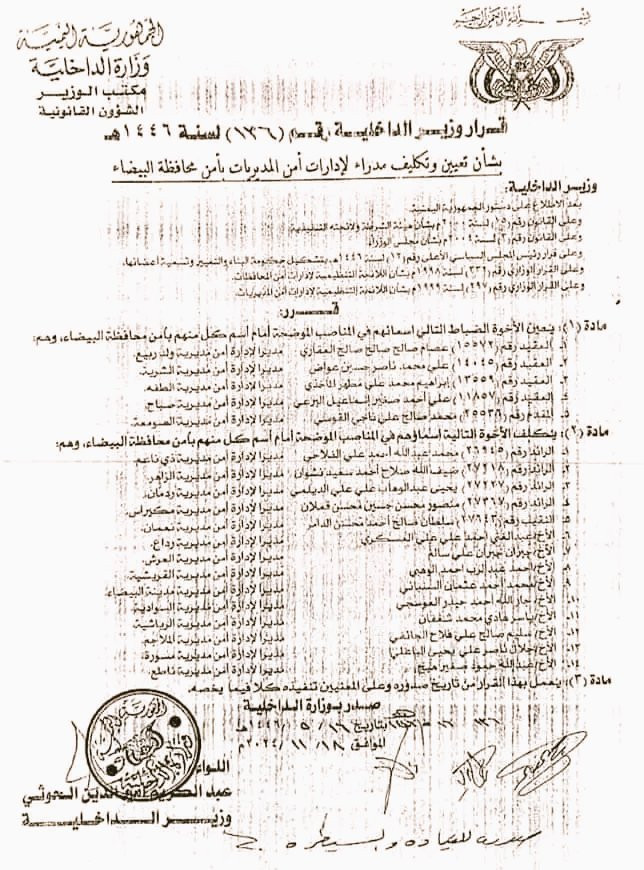 بسم الله الرحمن الرحيم
الجمهورية اليمنية
وزارة الداخلية
مكتب الوزير
الشؤون القانونية
قرار وزير الداخلية رقم (١٣٦) لسنة ١٤٤٦هـ
بشأن تعيين وتكليف مدراء لإدارات أمن المديريات بأمن محافظة البيضاء
وزير الداخلية:
بعد الاطلاع على دستور الجمهورية اليمنية.
وعلى القانون رقم (١٥) لسنة بشأن هيئة الشرطة ولائحته التنفيذية
وعلى القانون رقم (٣) لسنة ٢٠٠٤م بشأن مجلس الوزراء.
وعلى قرار رئيس المجلس السياسي الأعلى رقم (١٢) لسنة ١٤٤٦هـ بتشكيل حكومة البناء والتغيير وتسمية أعضائها.
وعلى القرار الوزاري رقم (٣٣٢) لسنة ١٩٩٨م بشأن اللائحة التنظيمية لإدارات أمن المحافظات.
وعلى القرار الوزاري رقم (٢٩٧) لسنة ١٩٩٩م بشأن اللائحة التنظيمية لإدارات أمن المديريات.
قـــــرر:
مادة (١): يتعين الأخوة الضباط التالي اسمائهم في المناصب الموضحة أمام أسم كل منهم بأمن محافظة البيضاء، وهم:
١- العقيد رقم (١٥٥٧٢) عصام صالح صالح الغفاري مديرا لإدارة أمن مديرية ولد ربيع.
٢- العقيد رقم (١٤٠٤٥) علي محمد ناصر حسين عواض مديرا لإدارة أمن مديرية الشرية.
٣- العقيد رقم (١٣٥٥٩) إبراهيم محمد علي مطهر المأخذي مديرا لإدارة أمن مديرية الطفه.
٤- العقيد رقم (١١٨٥٧) علي أحمد صغير إسماعيل البزعي مديرا لإدارة أمن مديرية صباح.
٥- المقدم رقم (٢٥٥٣٦) محمد صالح علي ناجي القوسي مديرا لإدارة أمن مديرية الصومعة.
مادة (٢): يتكلف الأخوة التالية أسماؤهم في المناصب الموضحة أمام أسم كل منهم بأمن محافظة البيضاء، وهم:
١- الرائد رقم (٢٩٩٤٥) محمد عبدالله أحمد علي الفلاحي مديرا لإدارة أمن مديرية ذي ناعم.
٢- الرائد رقم ضيف الله صلاح أحمد سعيد نشوان مديرا لإدارة أمن مديرية الزاهر.
٣- الرائد رقم (٢٧٢٣٧) يحيى عبدالوهاب علي علي الديلمي مديرا لإدارة أمن مديرية ردمان.
٤- الرائد رقم (٢٧٣٦٧) منصور محسن حسين محسن فملان مديرا لإدارة أمن مديرية مكيراس.
٥- النقيب رقم سلطان صالح أحمد محسن الدامر مديرا لإدارة أمن مديرية نعمان.
٦- الأخ/ عبدالغني أحمد علي علي العسكري مديرا لإدارة أمن مديرية رداع.
٧- الأخ/ جبران جبران علي سالم مديرا لإدارة أمن مديرية العرش.
٨- الأخ/ أحمد عبدالرب أحمد الوهبي مديرا لإدارة أمن مديرية القريشية.
٩- الأخ/ محمد أحمد عثمان مديرا لإدارة أمن مديرية مدينة البيضاء.
١٠- الأخ/ جارالله أحمد حيدر العوسجي مديرا لإدارة أمن مديرية السوادية.
١١- الأخ/ ياسر هادي محمد شغفان مديرا لإدارة أمن مديرية الرياشية.
١٢- الأخ/ سليم صالح علي فلاح الجائفي مديرا لإدارة أمن مديرية الملاجم.
١٣- الأخ/ جلال ناصر علي يحيى مديرا لإدارة أمن مديرية مسورة.
١٤- الأخ/ عبدالله حمود سفير مديرا لإدارة أمن مديرية ناطع.
مادة (٣): يعمل بهذا القرار من تاريخ صدوره وعلى المعنيين تنفيذه كلا فيما يخصه.
صدر بوزارة الداخلية
بتاريخ ١٦ / ٥ / ١٤٤٦هـ
الموافق ١٨ / ١١ / ٢٠٢٤م
اللواء
عبدالكريم أمير الدين الحوثي
وزير الداخلية
للقيادة والسيطرة